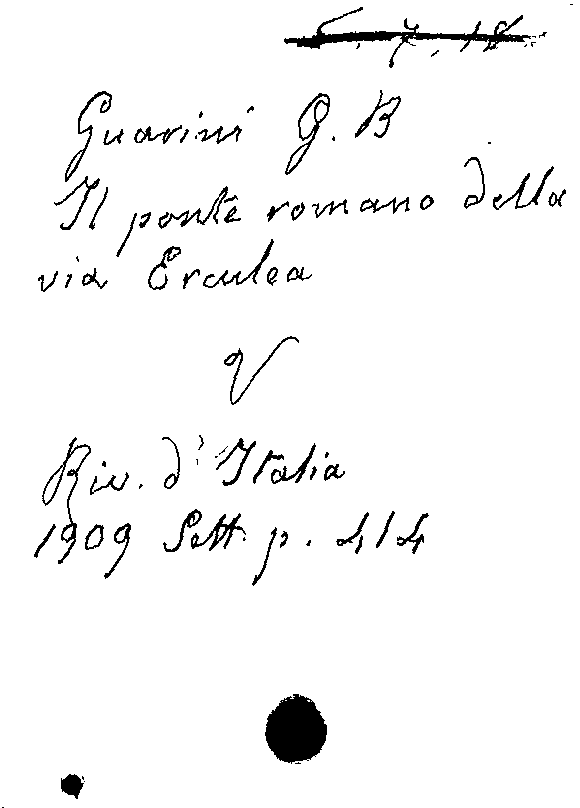 Guarini G. B
Il ponte romano della
via Erculea
V
Riv. d'Italia
1909 Sett. p. 414